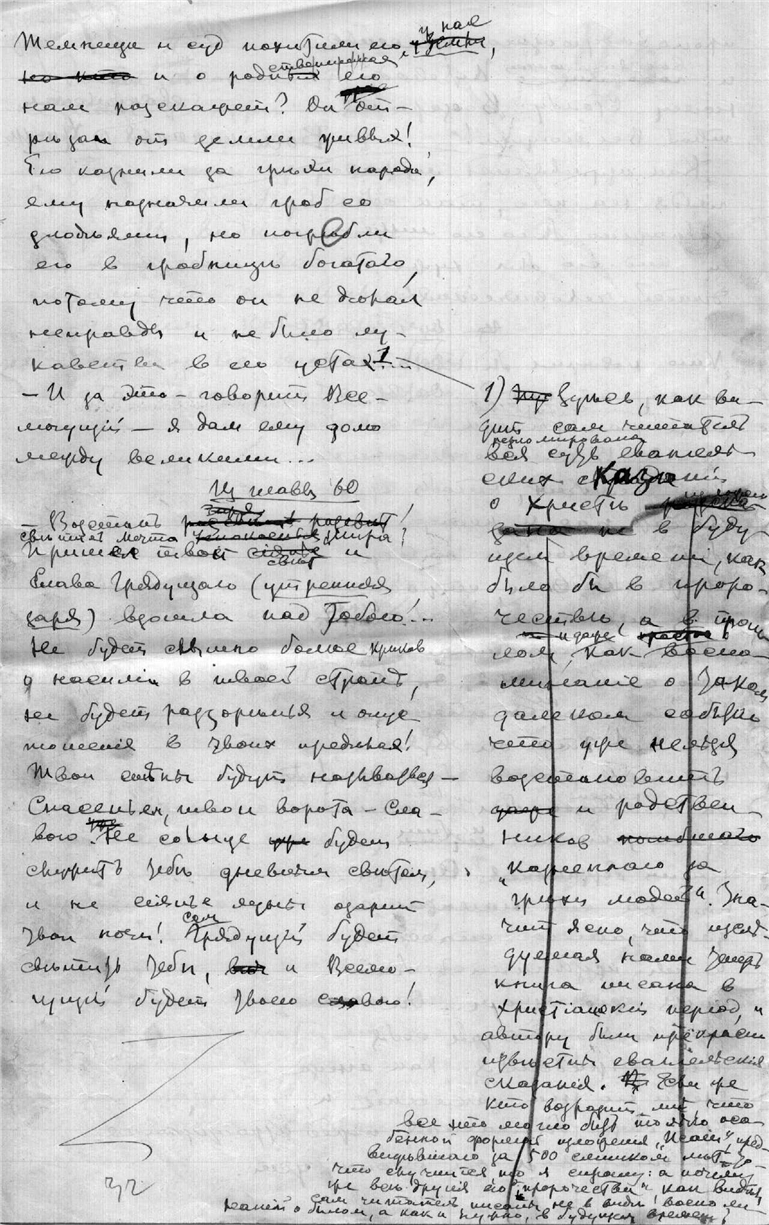 Темница и суд похитили его у нас,
и о родных его
нам расскажет? Он от-
рѣзан от земли живых!
Его казнили за грѣхи народа,
ему назначили гроб со
злодѣями, но погребли
его в гробницѣ богатаго,
потому что он не дѣлал
неправды и не было лу-
кавства в его устах 1...
— И за это — говорит Все-
могущій — я дам ему долю
между великими...
Из главы 60
— Возстань
Пришел твой свѣт и
Слава Грядущаго (утренняя
заря) взошла над Тобою!...
Не будет слышно болѣе криков
о насиліи в твоей странѣ,
не будет раззоренья и опу-
тошенія в твоих предѣлах!
Твои стѣны будут называться —
Спасеньем, твои ворота — Сла-
вою. Не солнце уже будет
служить тебѣ дневным свѣтом,
и не сіянье луны озарит
твои ночи! Сам Грядущій будет
свѣтить тебѣ, и Всемо-
гущій будет твоею славою!
32
1) Здѣсь, как ви-
дит сам читатель
резюмирована
вся суть евангель-
ских сказаній
о Христѣ
в буду-
щем времени, как
было бы в проро-
чествѣ, а в прош-
лом, как воспо-
минаніе о таком
далеком событіи
что уже нельзя
возстановить
и родствен-
ников
"казненнаго за
грѣхи людей". Зна-
чит ясно, что изслѣ-
дуемая нами теперь
книга писана в
Христіанскій період, и
автору были прекрасно
извѣстны евангельскія
сказанія. Если же
кто возразит мнѣ, что
все это могло быть только осо-
бенной формой изложенія "Исаіи", пред-
видѣвшаго за 500 слишком лѣт то,
что случится, то я спрошу: а почему
же всѣ другія его "пророчества", как видит
сам читатель, писаны не в видѣ воспоми-
наній о былом, а как и нужно, в будущем времени?